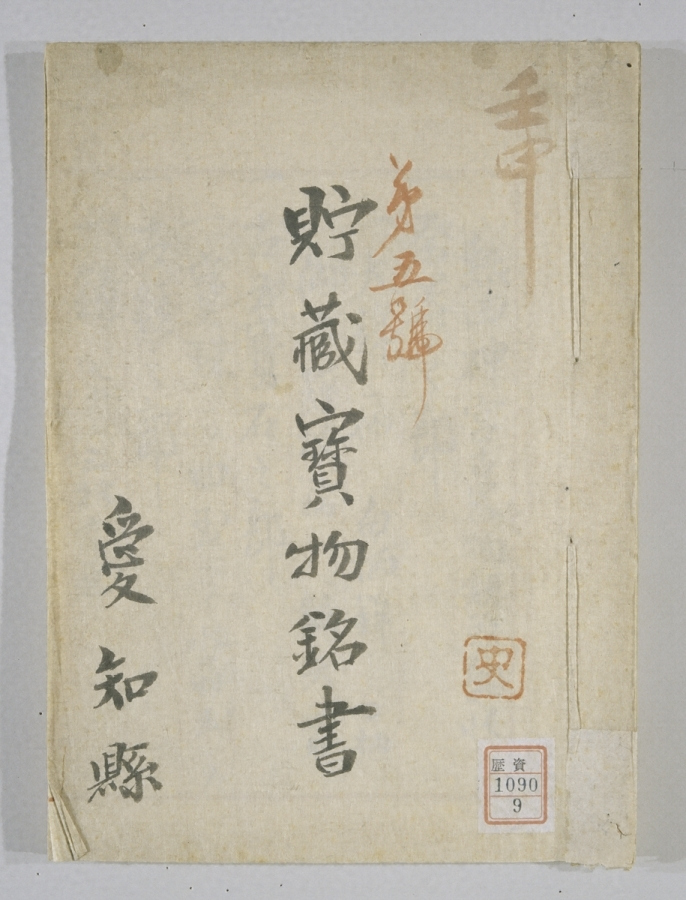 壬申
第五號
貯藏寶物銘書
愛知縣
史
歴資
1090
9